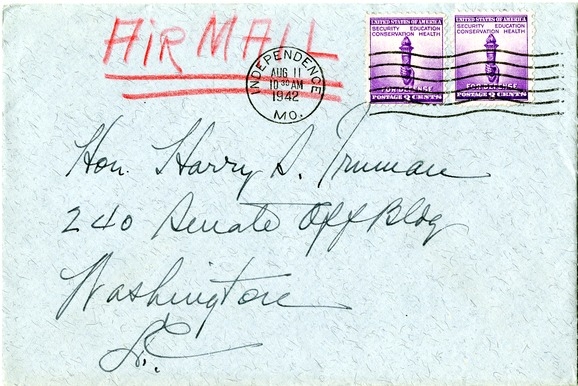 AIR MAIL
INDEPENDENCE
AUG 11
10 30 AM
1942
MO.
UNITED STATES OF AMERICA
SECURITY EDUCATION
CONSERVATION HEALTH
FOR DEFENSE
POSTAGE 3 CENTS
UNITED STATES OF AMERICA
SECURITY EDUCATION
CONSERVATION HEALTH
FOR DEFENSE
POSTAGE 3 CENTS
Hon. Harry S. Truman
240 Senate Off Bldg
Washington
D.C.